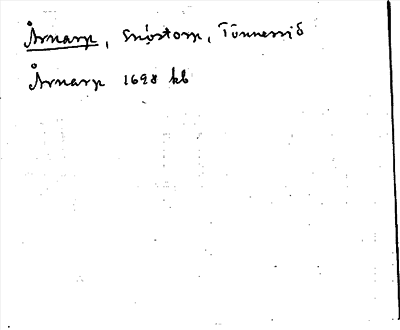 Årnarp, Snöstorp, Tönnersjö
Årnarp 1698 kb